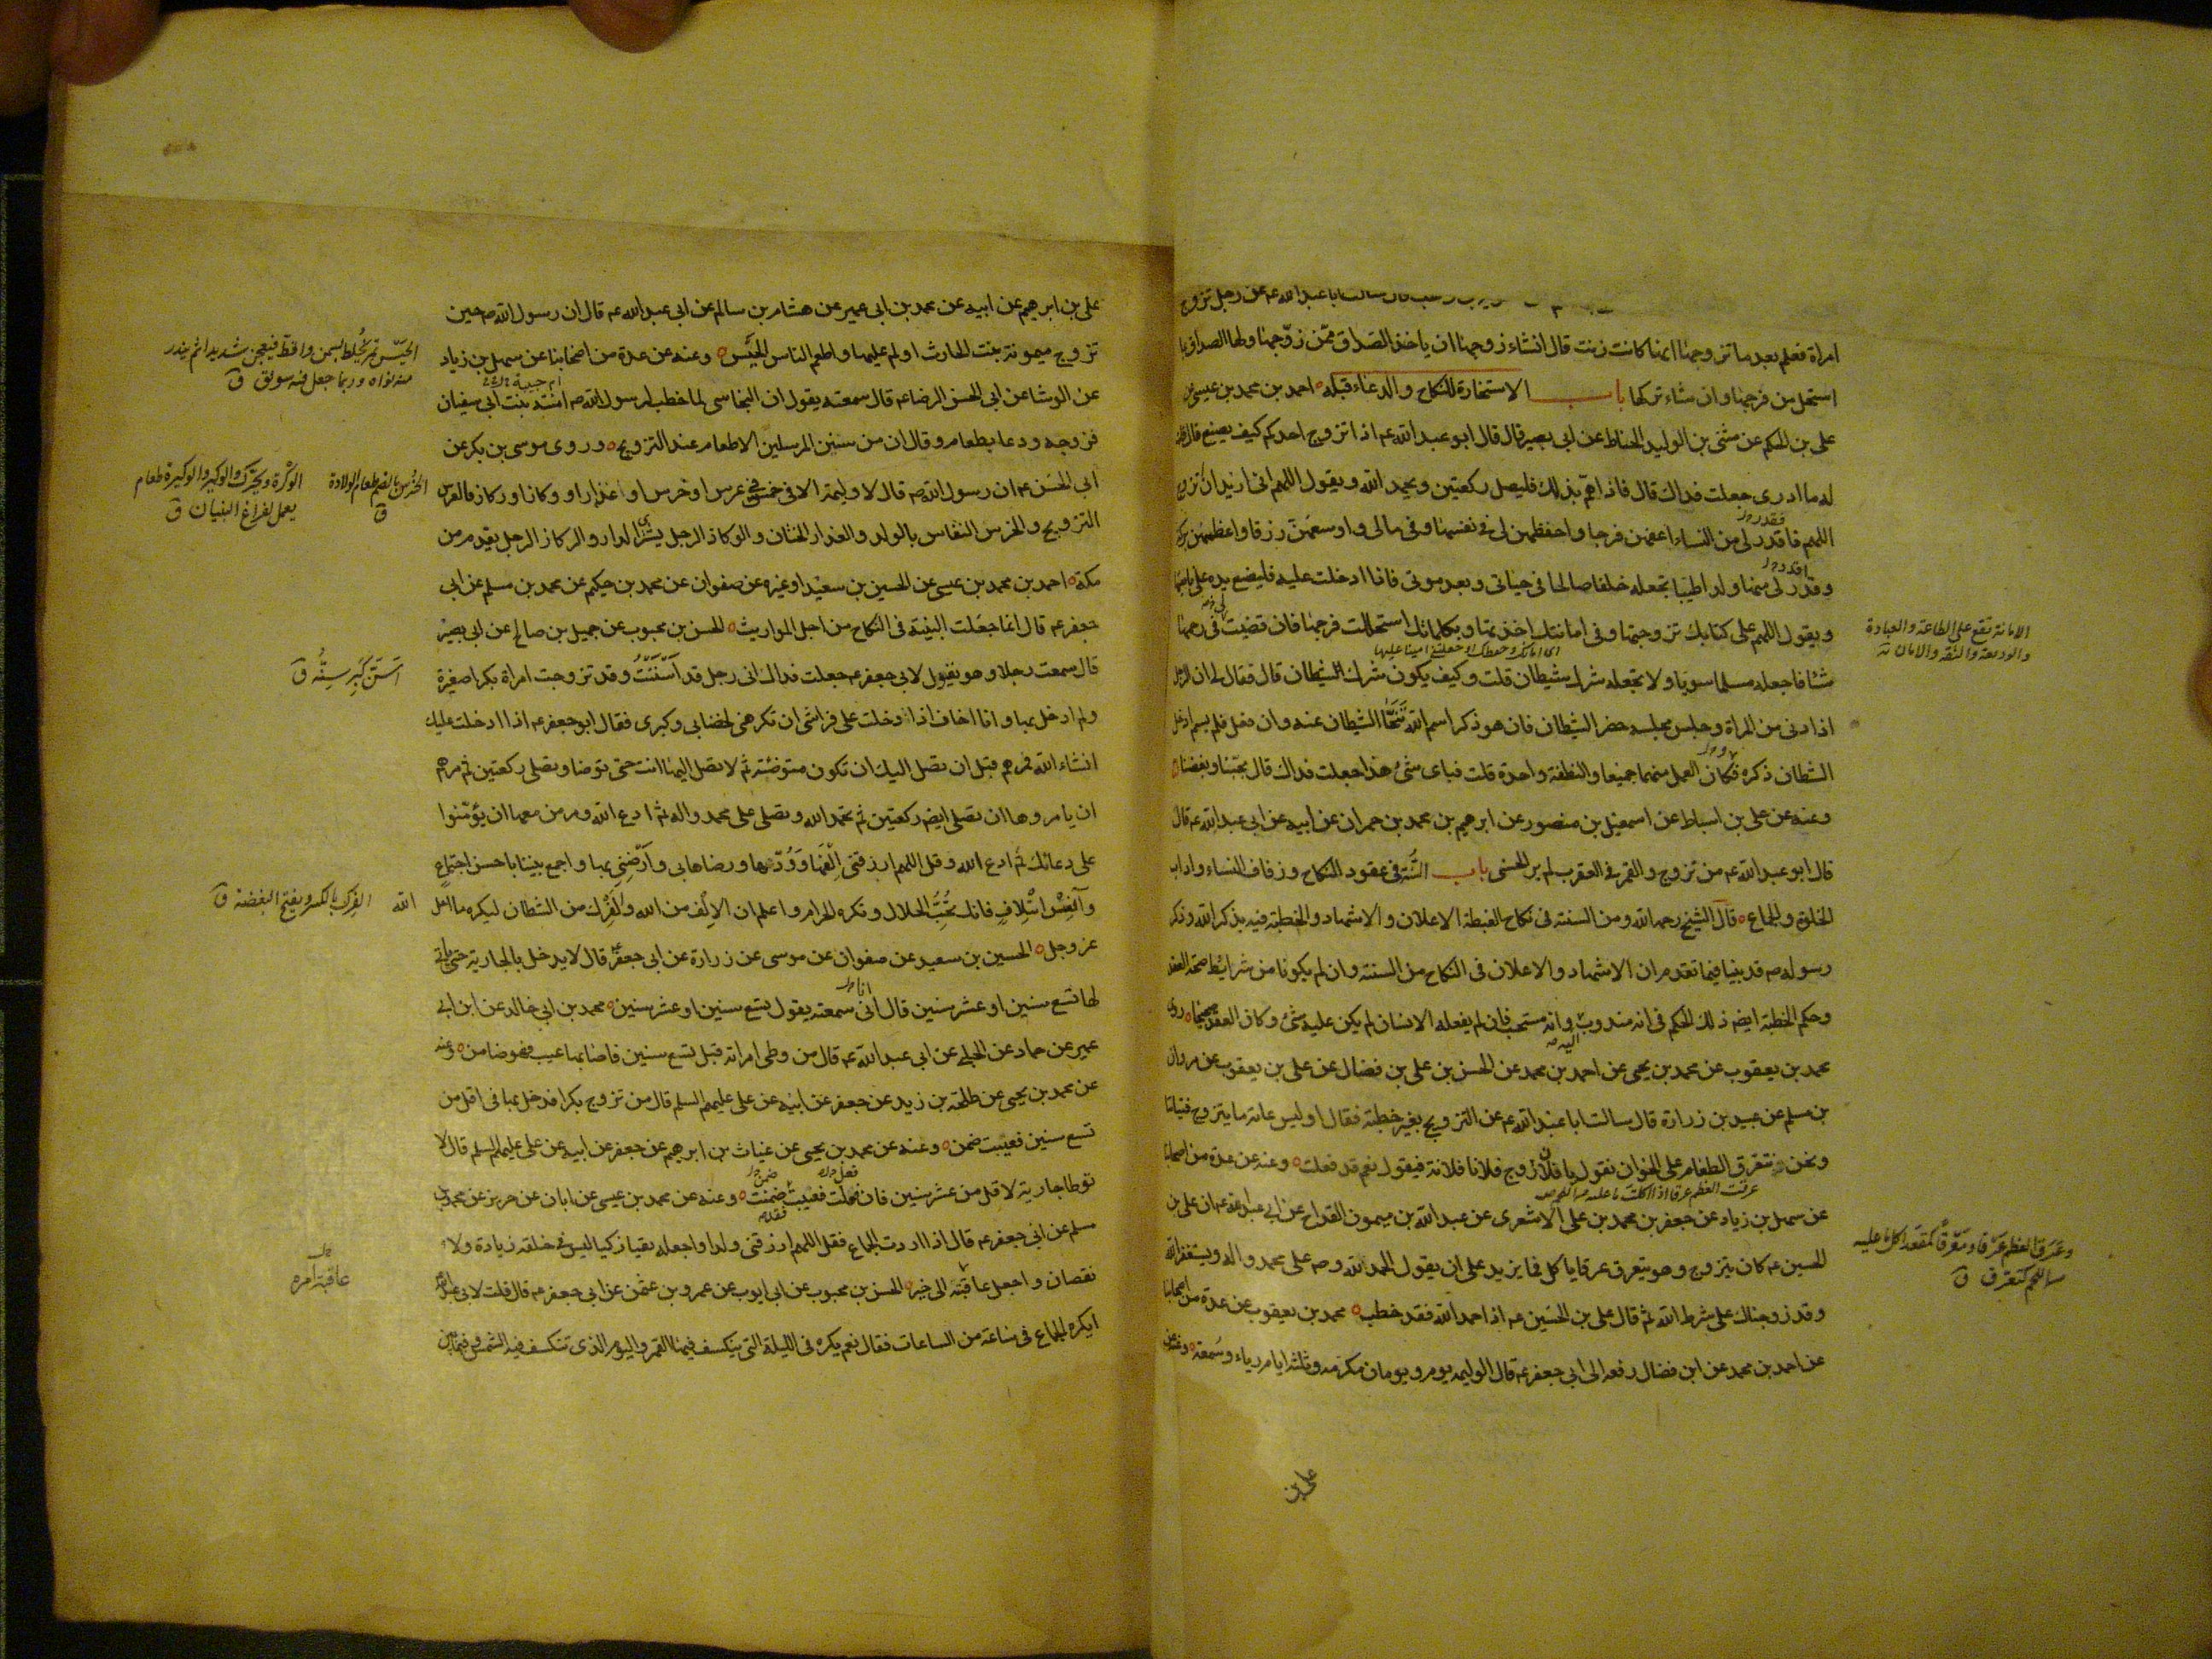 سالت ابا عبد الله عم عن رجل تزوج
امراة فعلم بعد ما تزوجها انها كانت زنت قال انشاء زوجها ان ياخذ الصداق ممن زوجها ولها الصداق بما
استحل من فرجها وان شاء تركها باب الاستخارة للنكاح والدعاء قبله احمد بن محمد بن عيسى عن
على بن الحكم عن مثنى بن الوليد الحناط عن ابى بصير قال قال ابو عبد الله عم اذا تزوج احدكم كيف يصنع قال قلت
له ما ادرى جعلت فداك قال فاذا هم بذلك فليصل ركعتين ويحمد الله ويقول اللهم انى اريد ان اتزوج
اللهم فاقدر لى من النساء اعفهن فرجا واحفظهن لى فى نفسها وفى مالى واوسعهن رزقا واعظمهن بركة
وقدر لى منها ولدا طيبا تجعله خلفا صالحا فى حياتى وبعد موتى فاذا ادخلت عليه فليضع يده على ناصيتها
ويقول اللهم على كتابك تزوجتها وفى امانتك اخذتها وبكلماتك استحللت فرجها فان قضيت فى رحمها
شئا فاجعله مسلما سويا ولا تجعله شرك شيطان قلت وكيف يكون شرك الشيطان قال فقال لى ان الرجل
اذا دنى من المراة وجلس مجلسه حضر الشيطان فان هو ذكر اسم الله تنحا الشيطان عنه وان فعل فلم يسم ادخل
الشطان ذكره فكان العمل منهما جميعا والنطفة واحدة قلت فباى شئ هذا جعلت فداك قال بحبنا وبغضنا
وعنه عن على بن اسباط عن اسمعيل بن منصور عن ابرهيم بن محمد بن حمران عن ابيه عن ابى عبد الله عم قال
قال ابو عبد الله عم من تزوج والقمر فى العقرب لم ير الحسنى باب السنة فى عقود النكاح وزفاف النساء واداب
الخلوة والجماع قال الشيخ رحمه الله ومن السنة فى نكاح الغبطة الاعلان والاشهاد والخطبة فيه بذكر الله وذكر
رسوله صم قد بينا فيما تقدم ان الاشهاد والاعلان فى النكاح من السنة وان لم يكونا من شرايط صحة العقد
وحكم الخطبة ايضم ذلك الحكم فى انه مندوب وانه مستحب فان لم يفعله الانسان لم يكن عليه شئ وكان العقد صحيحا روى
محمد بن يعقوب عن محمد بن يحيى عن احمد بن محمد عن الحسن بن على بن فضال عن على بن يعقوب عن مروان
بن مسلم عن عبيد بن زرارة قال سالت ابا عبد الله عم عن التزويج بغير خطبة فقال او ليس عامة ما يتزوج فتياتنا
ونحن نتعرق الطعام على الخوان نقول يا فلان زوج فلانا فلانة فيقول نعم قد فعلت وعنه عن عدة من اصحابنا
عن سهل بن زياد عن جعفر بن محمد بن على الاشعرى عن عبد الله بن ميمون القداح عن ابى عبد الله عم ان على بن
الحسين عم كان يتزوج وهو يتعرق عرقا ياكل فما يزيد على ان يقول الحمد لله وصم على محمد واله ويستغفر الله
وقد زوجناك على شرط الله ثم قال على بن الحسين عم اذا حمد الله فقد خطب محمد بن يعقوب عن عدة من اصحابنا
عن احمد بن محمد عن ابن فضال رفعه الى ابى جعفر عم قال الوليمه يوم ويومان مكرمه وثلثه ايام رياء وسمعة وعنه عن
على بن
الامانة تقع على الطاعة والعبادة
والوديعة والثقه والامان
وعرق العظم عرقا ومعرقا كمقعد اكل ما عليه
من اللحم كتعرق ق
على بن ابرهيم عن ابيه عن محمد بن ابى عمير عن هشام بن سالم عن ابى عبد الله عم قال ان رسول الله صم حين
تزوج ميمونة بنت الحارث اولم عليها واطعم الناس الحيس وعنه عن عدة من اصحابنا عن سهل بن زياد
عن الوشا عن ابى الحسن الرضا عم قال سمعته يقول ان النجاسى لما خطب لرسول الله صم امنة بنت ابى سفيان
فزوجه ودعا بطعام وقال ان من سنن المرسلين الاطعام عند التزويج وروى موسى بن بكر عن
ابى الحسن عم ان رسول الله صم قال لا وليمة الا فى خمس فى عرس او خرس او اعذار او وكاز او ركاز فالعرس
التزويج والخرس النفاس بالولد والعذار الختان والوكاز الرجل يشرى الدار والركاز الرجل يقدم من
مكة احمد بن محمد بن عيسى عن الحسين بن سعيد او غيره عن صفوان عن محمد بن حكيم عن محمد بن مسلم عن ابى
جعفر عم قال انما جعلت البينة فى النكاح من اجل المواريث الحسن بن محبوب عن جميل بن صالح عن ابى بصير
قال سمعت رجلا وهو يقول لابى جعفر عم جعلت فداك انى رجل قد اسننت وقد تزوجت امراة بكرا صغيرة
ولم ادخل بها وانا اخاف اذا دخلت على فراشى ان تكرهنى لخضابى وكبرى فقال ابو جعفر عم اذا ادخلت عليك
انشاء الله فمرهم قبل ان تصل اليك ان تكون متوضئة ثم لا تصل اليها انت حتى توضا وتصلى ركعتين ثم مرهم
ان يامروها ان تصلى ايضم ركعتين ثم تحمد الله وتصلى على محمد واله ثم ادع الله ومر من معها ان يؤمنوا
على دعائك ثم ادع الله وقل اللهم ارزقنى الفها وودها ورضاها بى وارضنى بها واجمع بيننا باحسن اجتماع
وآنس ائتلاف فانك تحب الحلال وتكره الحرام واعلم ان الالف من الله والفرك من الشطان ليكره ما احل
الله
عز وجل الحسين بن سعيد عن صفوان عن موسى عن زرارة عن ابى جعفر قال لا يدخل بالجارية حتى ياتى
لها تسع سنين او عشر سنين قال انى سمعته يقول تسع سنين او عشر سنين محمد بن ابى خالد عن ابن ابى
عمير عن حماد عن الحلبى عن ابى عبد الله عم قال من وطى امراته قبل تسع سنين فاصابها عيب فهو ضامن وعنه
عن محمد بن يحيى عن طلحة بن زيد عن جعفر عن ابيه عن على عليهم السلم قال من تزوج بكرا فدخل بها فى اقل من
تسع سنين فعيبت ضمن وعنه عن محمد بن يحيى عن غياث بن ابرهيم عن جعفر عن ابيه عن على عليهم السلم قال لا
توطا جارية لاقل من عشر سنين فان فعلت فعيبت ضمنت وعنه عن محمد بن عيسى عن ابان عن حريز عن محمد بن
مسلم عن ابى جعفر عم قال اذا اردت الجماع فقل اللهم ارزقنى ولدا واجعله تقيا زكيا ليس فى خلقه زيادة ولا
نقصان واجعل عاقبته الى خير الحسن بن محبوب عن ابى ايوب عن عمرو بن عثمن عن ابى جعفر عم قال قلت لابى
ايكره الجماع فى ساعة من الساعات فقال نعم يكره فى الليلة التى ينكسف فيها القمر واليوم الذى تنكسف فيه الشمس وفيما بين
الحيس تمر يخلط بسمن واقط فيعجن شديدا ثم يندر
منه نواه وربما جعل فيه سويق ق
الخرس بالضم طعام الولادة ق
الوكرة ويحرك والوكير والوكيرة طعام
يعمل لفراغ البنيان ق
استن كبر سنه ق
الفرك بالكسر ويفتح البغضة ق
عاقبة امره